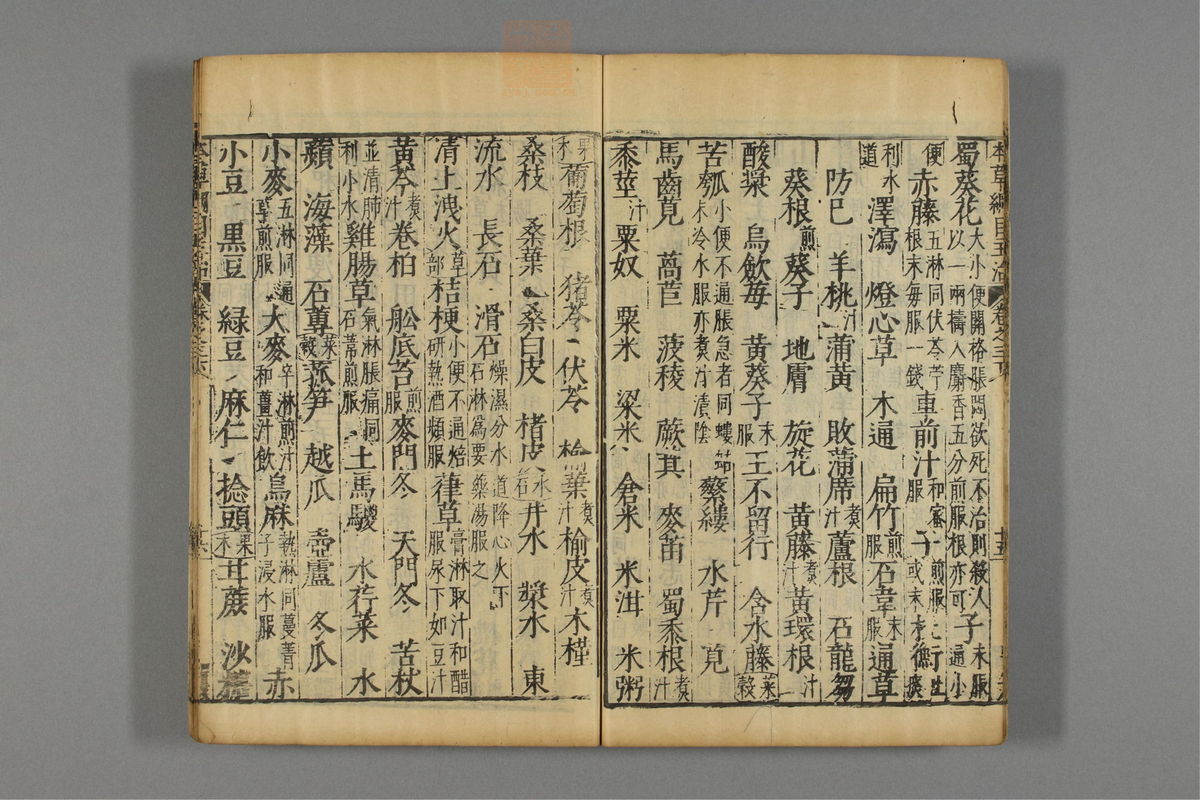 蜀葵花大小便關格脹悶欲死不治則殺人以一兩擣入麝香五分煎服根亦可子末服通小
便赤藤五淋同伏苓苧根末每服一錢車前汁和蜜服子煎服或末
利水道澤瀉 燈心草 木通 扁竹煎服石韋末服通草
防巳 羊桃汁蒲黃 敗蒲席煮汁蘆根 石龍芻
葵根煎葵子 地膚 旋花 黃藤煮汁黃環根汁
酸漿 烏歛苺 黃葵子末服王不留行 含水藤菜穀
苦瓠小便不通脹急者同螻蛄末冷水服亦煮汁漬陰蘩縷 水芹 莧
馬齒莧 萵苣 菠薐 蕨萁 麥苗 蜀黍根煮汁
黍莖汁粟奴 粟米 粱米 倉米 米泔 米粥
果木葡萄根 猪苓 伏苓 榆葉煮汁榆皮煮汁木槿
桑枝 桑葉 桑白皮 楮皮水石井水 漿水 東
流水 長石 滑石燥濕分水道降心火下石淋爲要藥湯服之
清上洩火草部桔梗小便不通焙研熱酒頻服葎草膏淋取汁和醋服尿下如豆汁
黃芩煮汁卷柏 舩底苔煎服麥門冬 天門冬 苦杖
並清肺利小水雞腸草氣淋脹痛同石韋煎服土馬騣 水荇菜 水
蘋 海藻 石蓴菜穀菰笋 越瓜 壺盧 冬瓜
小麥五淋同通草煎服大麥卒淋煎汁和薑汁飲烏麻熱淋同蔓菁子浸水服赤
小豆 黑豆 緑豆 麻仁 捻頭果木甘蔗 沙